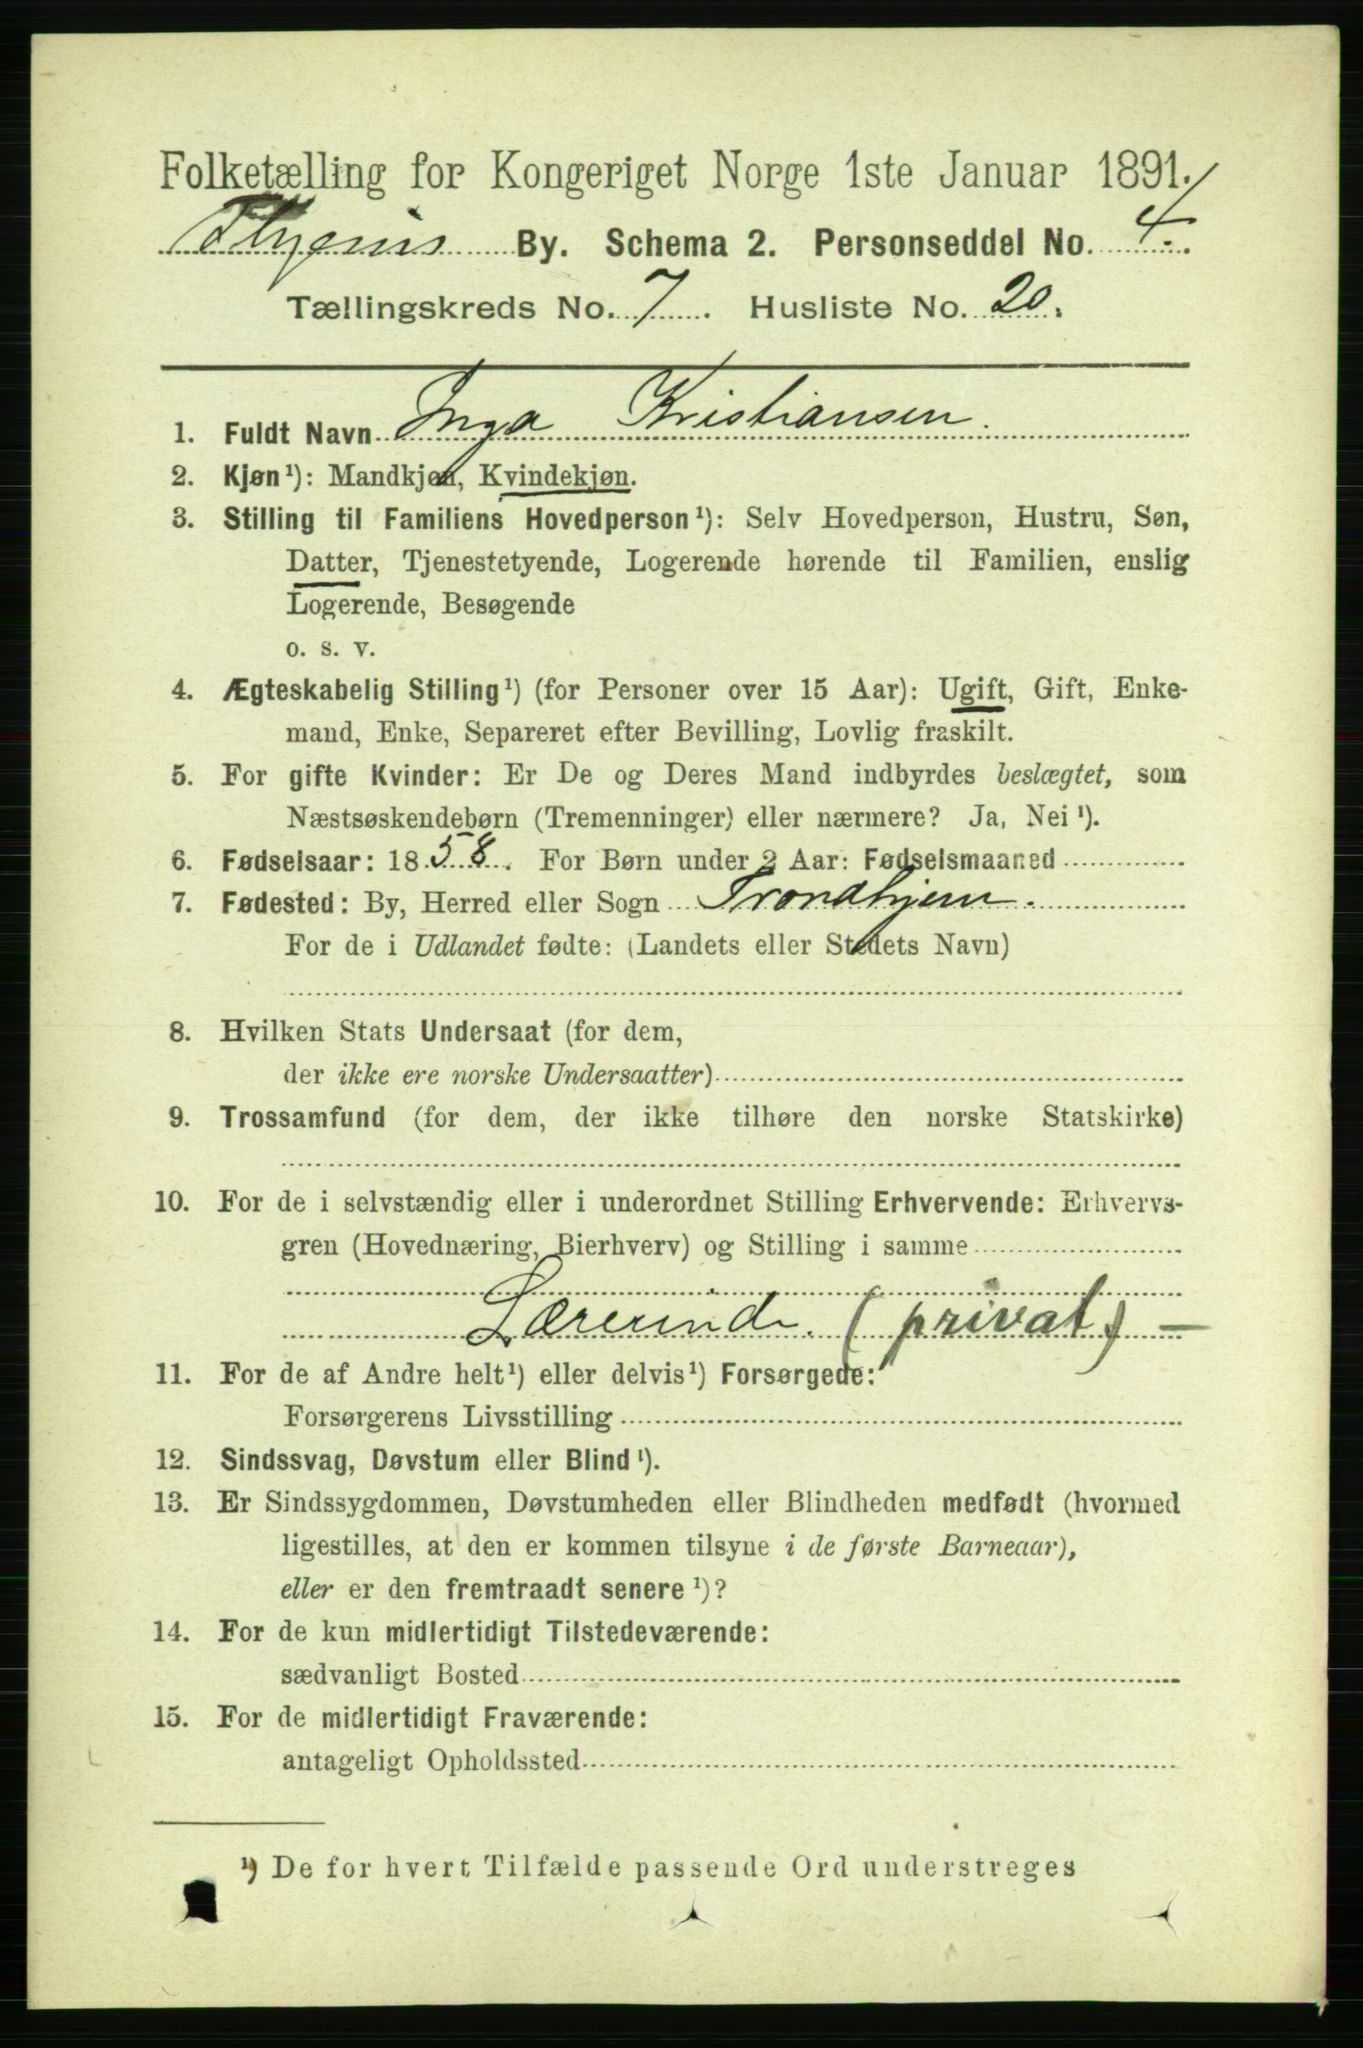 Folketælling for Kongeriget Norge 1ste Januar 1891.
Thjems By. Schema 2. Personseddel No. 4.
Tællingskreds No. 7. Husliste No. 20.
1. Fuldt Navn Inga Kristiansen.
2. Kjøn ¹): Mandkjøn, Kvindekjøn.
3. Stilling til Familiens Hovedperson ¹): Selv Hovedperson, Hustru, Søn,
Datter, Tjenestetyende, Logerende hørende til Familien, enslig
Logerende, Besøgende
o. s. v.
4. Ægteskabelig Stilling ¹) (for Personer over 15 Aar): Ugift, Gift, Enke-
mand, Enke, Separeret efter Bevilling, Lovlig fraskilt.
5. For gifte Kvinder: Er De og Deres Mand indbyrdes beslægtet, som
Næstsøskendebørn (Tremenninger) eller nærmere? Ja, Nei ¹).
6. Fødselsaar: 1858. For Børn under 2 Aar: Fødselsmaaned
7. Fødested: By, Herred eller Sogn Trondhjem.
For de i Udlandet fødte: (Landets eller Stedets Navn)
8. Hvilken Stats Undersaat (for dem,
der ikke ere norske Undersaatter)
9. Trossamfund (for dem, der ikke tilhøre den norske Statskirke)
10. For de i selvstændig eller i underordnet Stilling Erhvervende: Erhvervs-
gren (Hovednæring, Bierhverv) og Stilling i samme
Lærerinde. (privat) —
11. For de af Andre helt ¹) eller delvis ¹) Forsørgede:
Forsørgerens Livsstilling
12. Sindssvag, Døvstum eller Blind ¹).
13. Er Sindssygdommen, Døvstumheden eller Blindheden medfødt (hvormed
ligestilles, at den er kommen tilsyne i de første Barneaar),
eller er den fremtraadt senere ¹)?
14. For de kun midlertidigt Tilstedeværende:
sædvanligt Bosted
15. For de midlertidigt Fraværende:
antageligt Opholdssted
¹) De for hvert Tilfælde passende Ord understreges